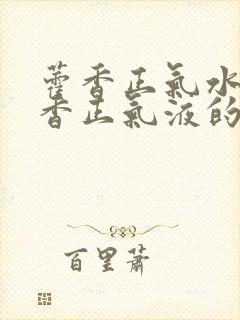 藿香正氣水
香正氣液的
百里蕭